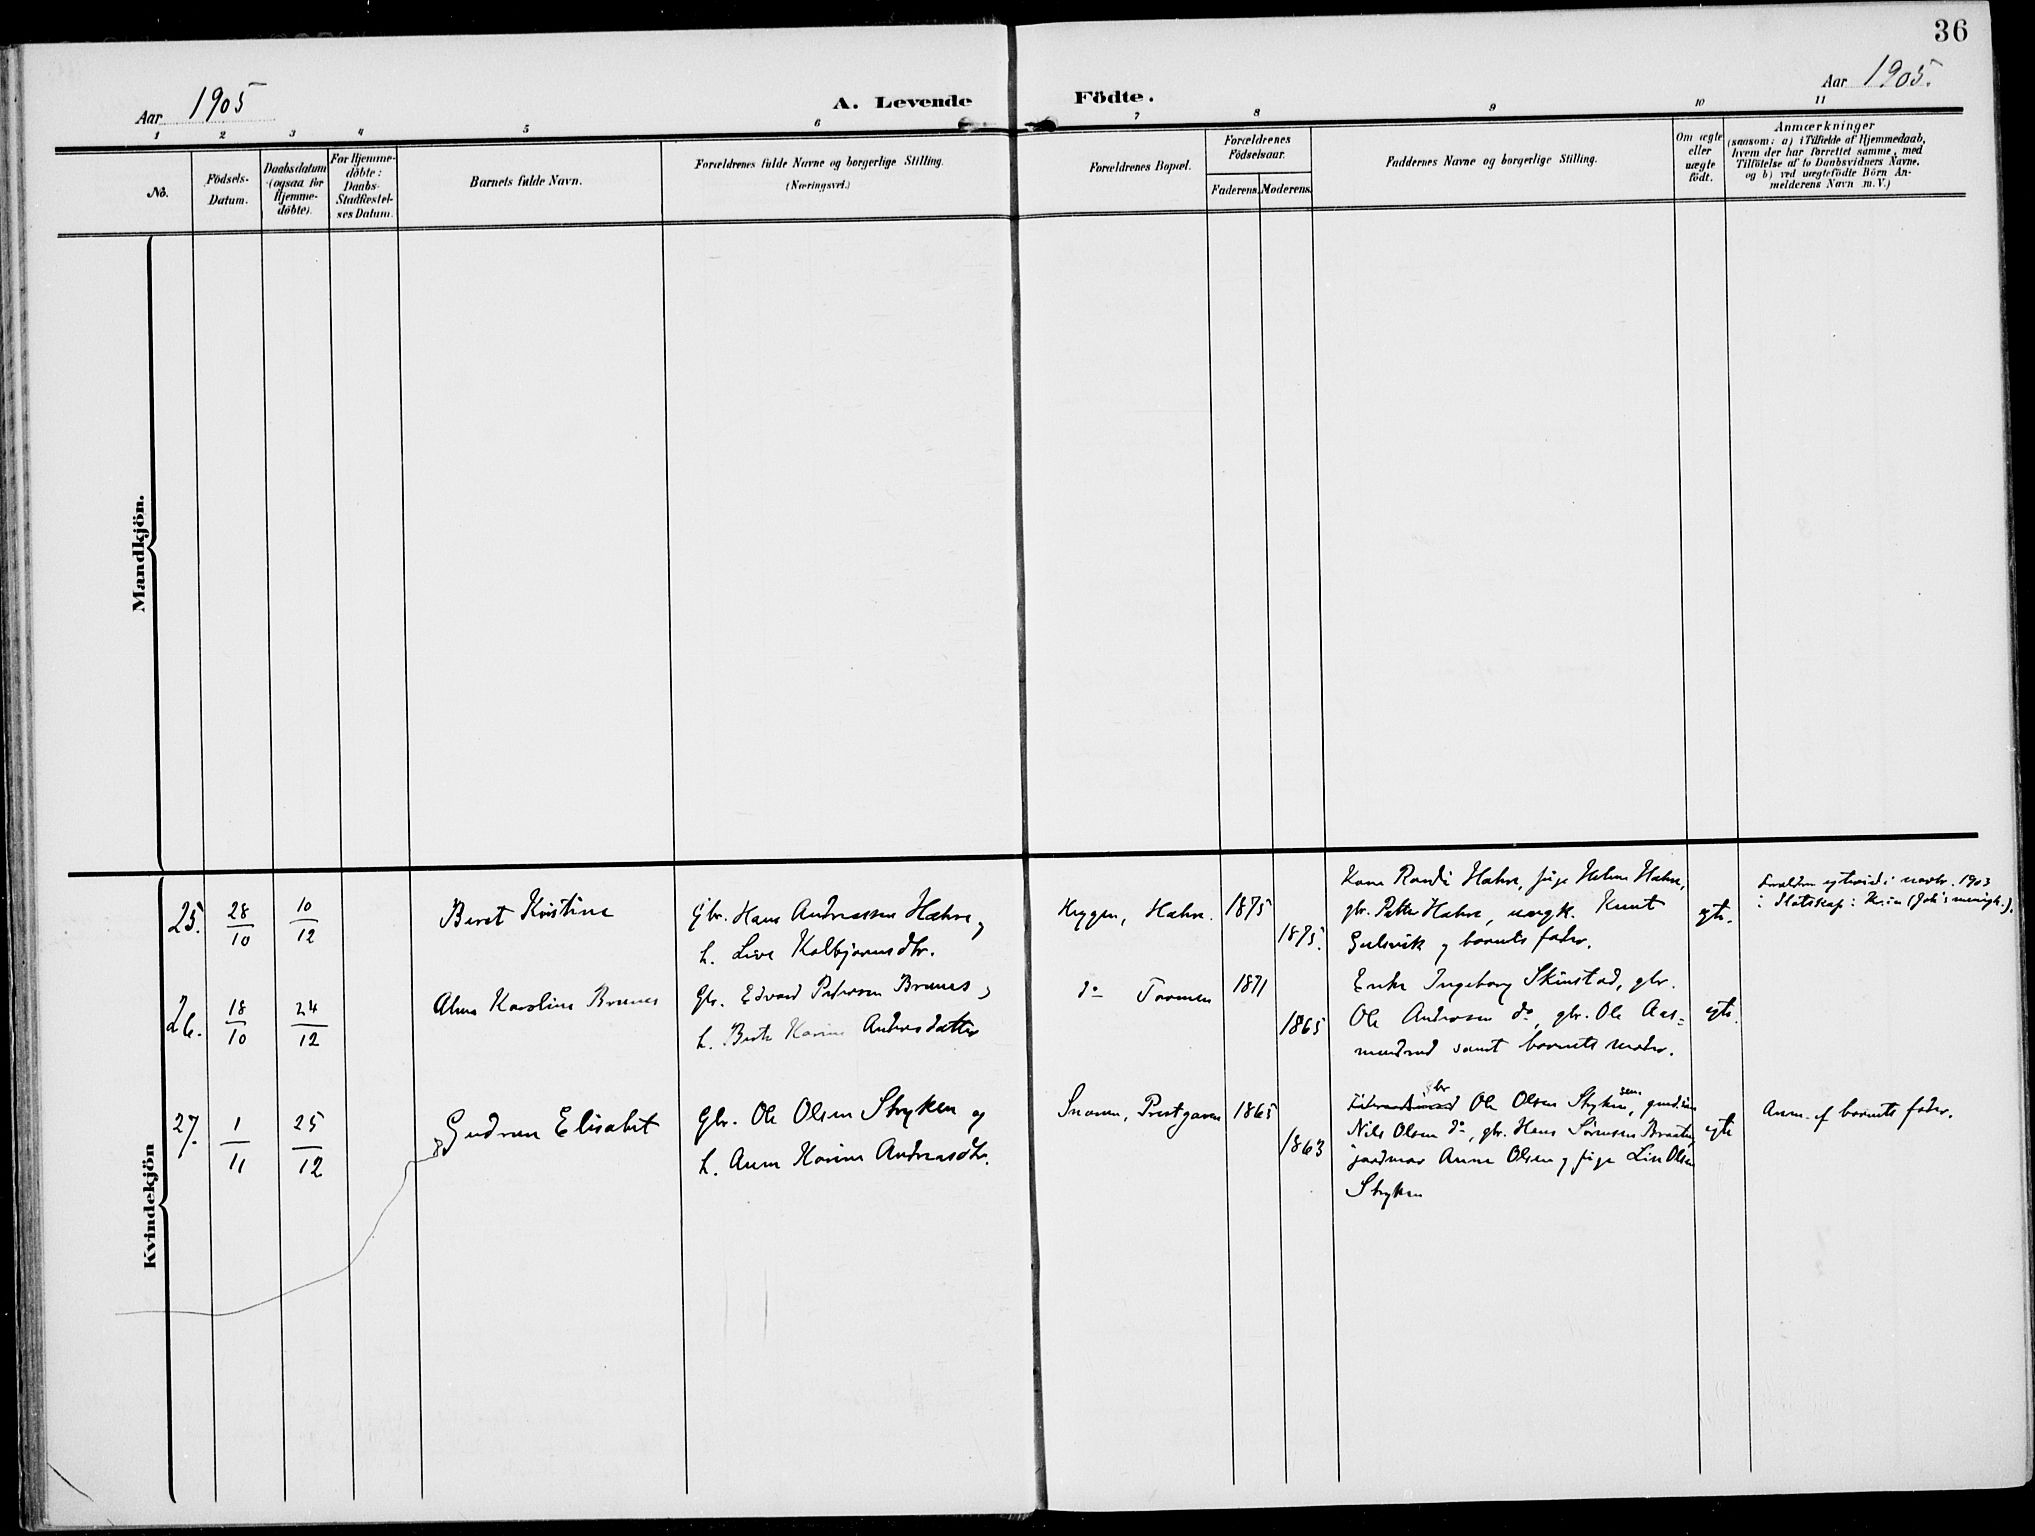 36
Aar 1905
A. Levende Födte.
Aar 1905.
1 2 3 4 5 6 7 8 9 10 11
No.
Födsels-
Datum.
Daabsdatum
(ogsaa for
Hjemme-
döbte).
For Hjemme-
döbte:
Daabs-
Stadfæstel-
ses Datum.
Barnets fulde Navn.
Forældrenes fulde Navne og borgerlige Stilling.
(Næringsvei.)
Forældrenes Bopæl.
Forældrenes
Födselsaar.
Faderens. Moderens.
Faddernes Navne og borgerlige Stilling.
Om ægte
eller
uægte
födt.
Anmærkninger
(saasom: a) i Tilfælde af Hjemmedaab,
hvem der har forrettet samme, med
Tilföielse af to Daabsvidners Navne,
og b) ved uægtefödte Börn An-
melderens Navn m. V.)
Mandkjön.
Kvindekjön
25. 28/10 10/12
Beret Kristine
Gbr. Hans Andreassen Hahre
h. Live Kolbjørnsdtr.
Kryggen, Hahre. 1875
1875.
Kone Randi Hahre, pige Helene Hahre,
gbr. Petter Hahre, ungk. Knut
Gulsvik og barnets fader.
egte.
26. 18/10 24/12
Alma Karoline Brunes
Gbr. Edvard Pedersen Brunes
h. Berte Karine Andersdatter
do 1871
1865
Enke Ingeborg Skinstad, gbr.
Ole Andersen do, gbr. Ole Aas=
mundrud samt barnets moder.
egte.
27. 1/11 25/12
Gudrun Elisabet
Gbr. Ole Olsen Stryken og
h. Anne Karine Andreasdtr.
Snarum, Prestgaren 1865
1863
gbr Ole Olsen Stryken sen,
Nils Olsen do, gbr. Hans Sørensen Braaten,
jordmor Anne Olsen og pige Lise Olsen
Stryken
egte
Anm. af barnets fader.